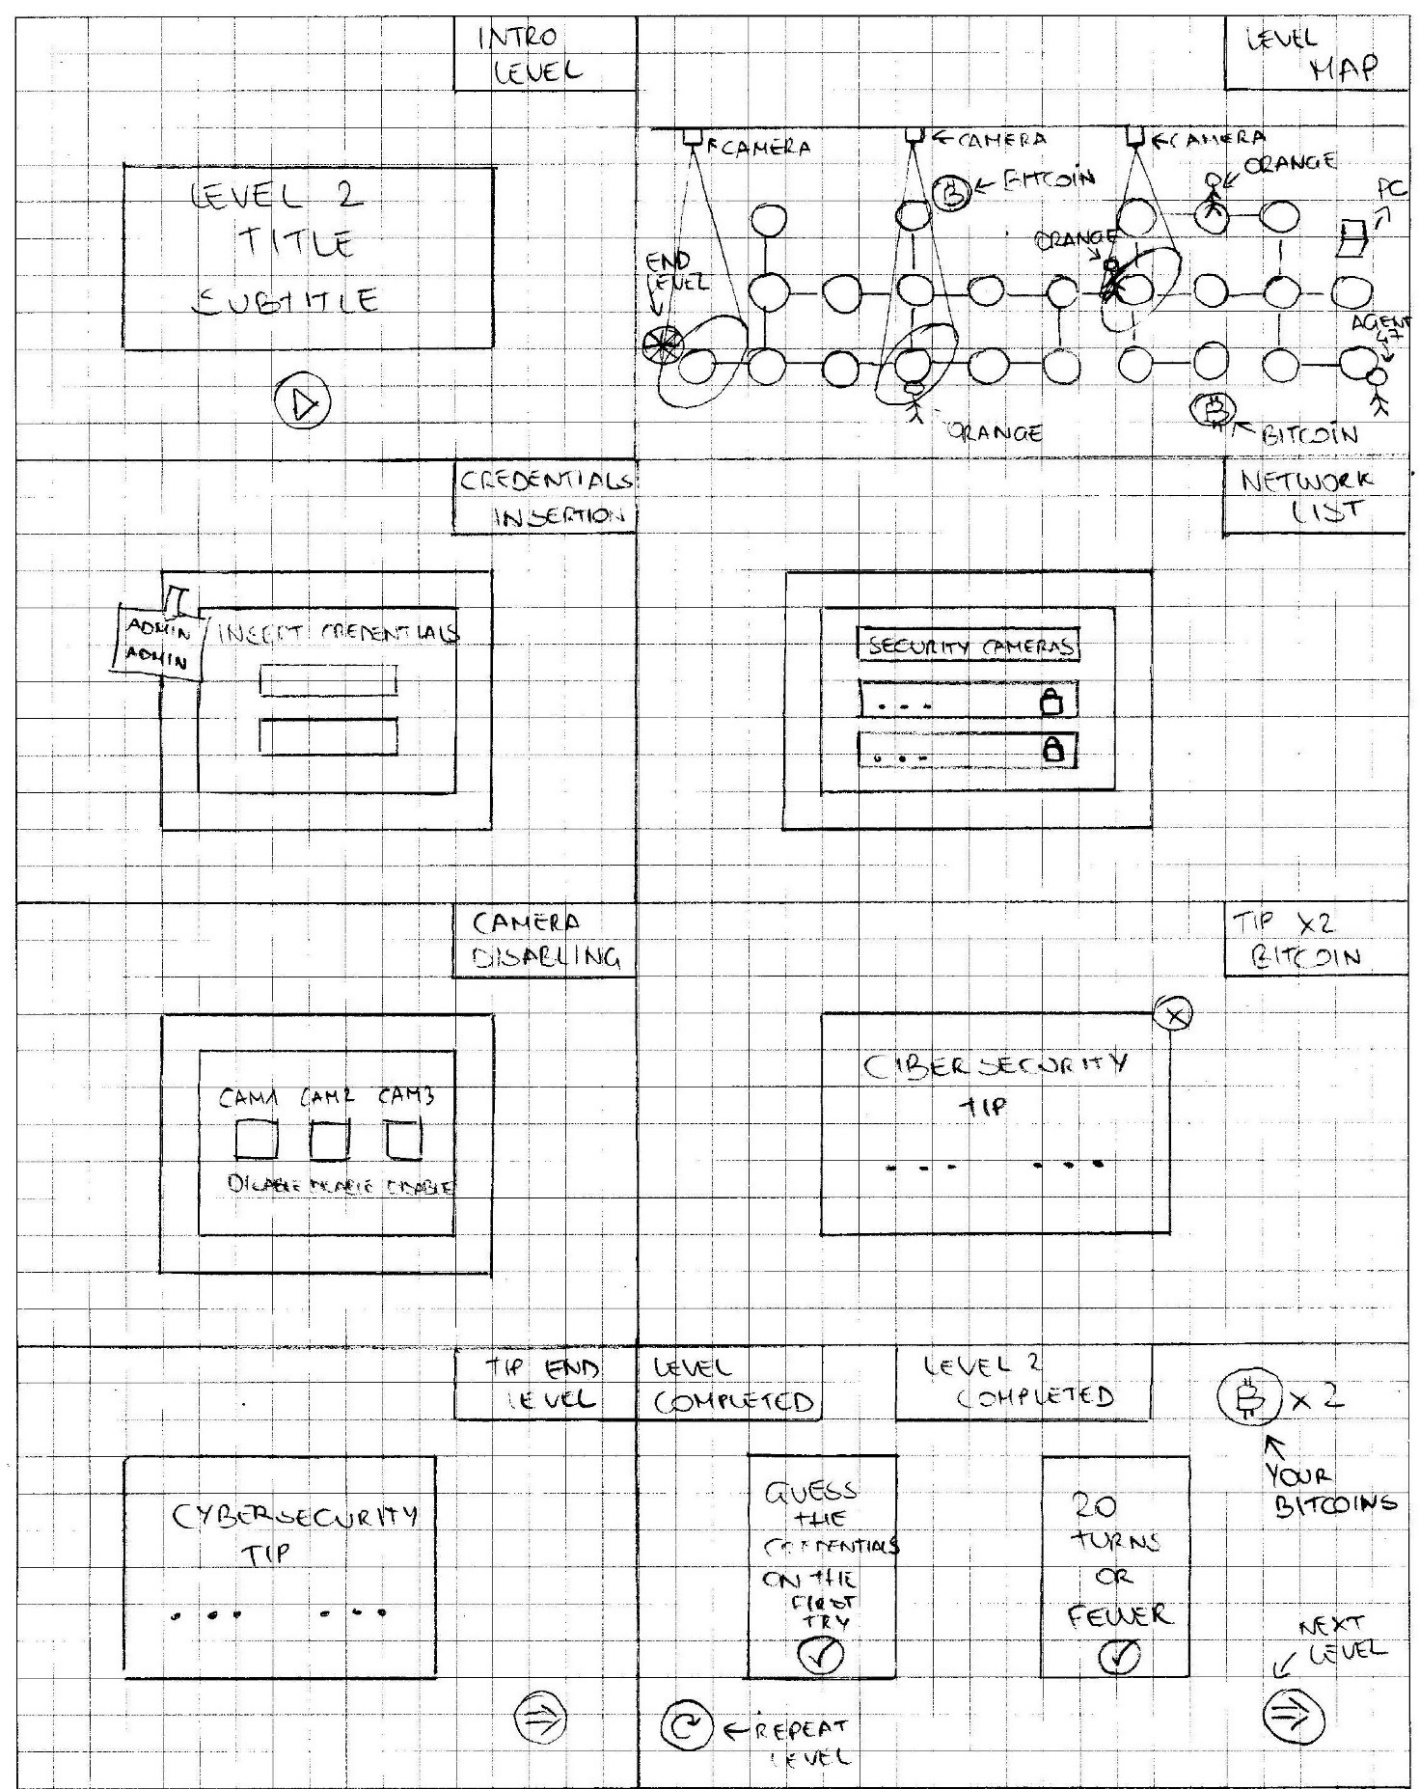 INTRO
LEVEL
LEVEL 2
TITLE
SUBTITLE
LEVEL
MAP
CAMERA
CAMERA
CAMERA
ORANGE
BITCOIN
PC
ORANGE
END
LEVEL
AGENT
47
ORANGE
BITCOIN
CREDENTIALS
INSERTION
ADMIN
ADMIN
INSERT CREDENTIALS
NETWORK
LIST
SECURITY CAMERAS
...
...
CAMERA
DISABLING
CAM1 CAM2 CAM3
DISABLE DISABLE DISABLE
TIP X2
BITCOIN
X
CIBERSECURITY
TIP
... ...
TIP END
LEVEL
CYBERSECURITY
TIP
... ...
LEVEL
COMPLETED
LEVEL 2
COMPLETED
X 2
YOUR
BITCOINS
GUESS
THE
CREDENTIALS
ON THE
FIRST
TRY
20
TURNS
OR
FEWER
NEXT
LEVEL
REPEAT
LEVEL